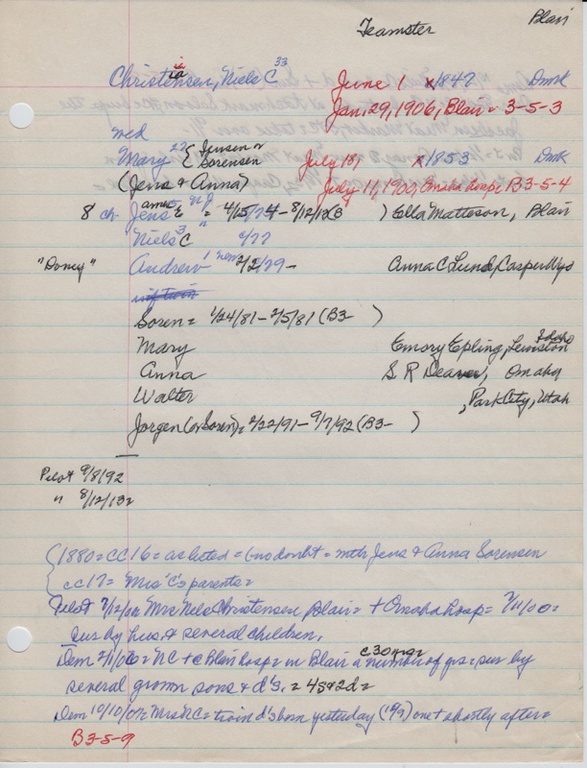 Teamster
Blair
Christensen, Niels C 33 June 1 1847 Dmrk
ia
Jan. 29, 1906, Blair = 3-5-3
wed
Mary 27 { Jensen or Sorensen July 18, 1853 Dmk
(Jens & Anna) July 11, 1900, Omaha hosp B3-5-4
8 ch Jens E = 4/15/74 - 8/12/13 (B ) Ella Matteson, Blair
Niels 3 C " 6/77
"Doney" Andrew 1 2/2/79 - Anna C Lund, Casper Wyo
Soren = 1/24/81 - 2/5/81 (B3- )
Mary Emory Epling, Lewiston Idaho
Anna S R Deaver, Omaha
Walter , Park City, Utah
Jorgen (or Soren) = 2/22/91 - 9/7/92 (B3- )
Pilot 9/8/92
" 8/12/13 =
1880 = CC16 = as listed = (no doubt = mthr Jens & Anna Sorensen
cc17 = Mrs C's parents =
Pilot 7/12/00 = Mrs Niels Christensen Blair = + Omaha hosp = 7/11/00 =
sur by hus & several children.
Dem 2/1/06 = NC + @ Blair hosp = in Blair a number of yrs = sur by
c 30 yrs =
several grown sons & d's. = 4s & 2d =
Dem 10/10/07 = Mrs NC = twin d's born yesterday (10/9) one + shortly after =
B3-5-9